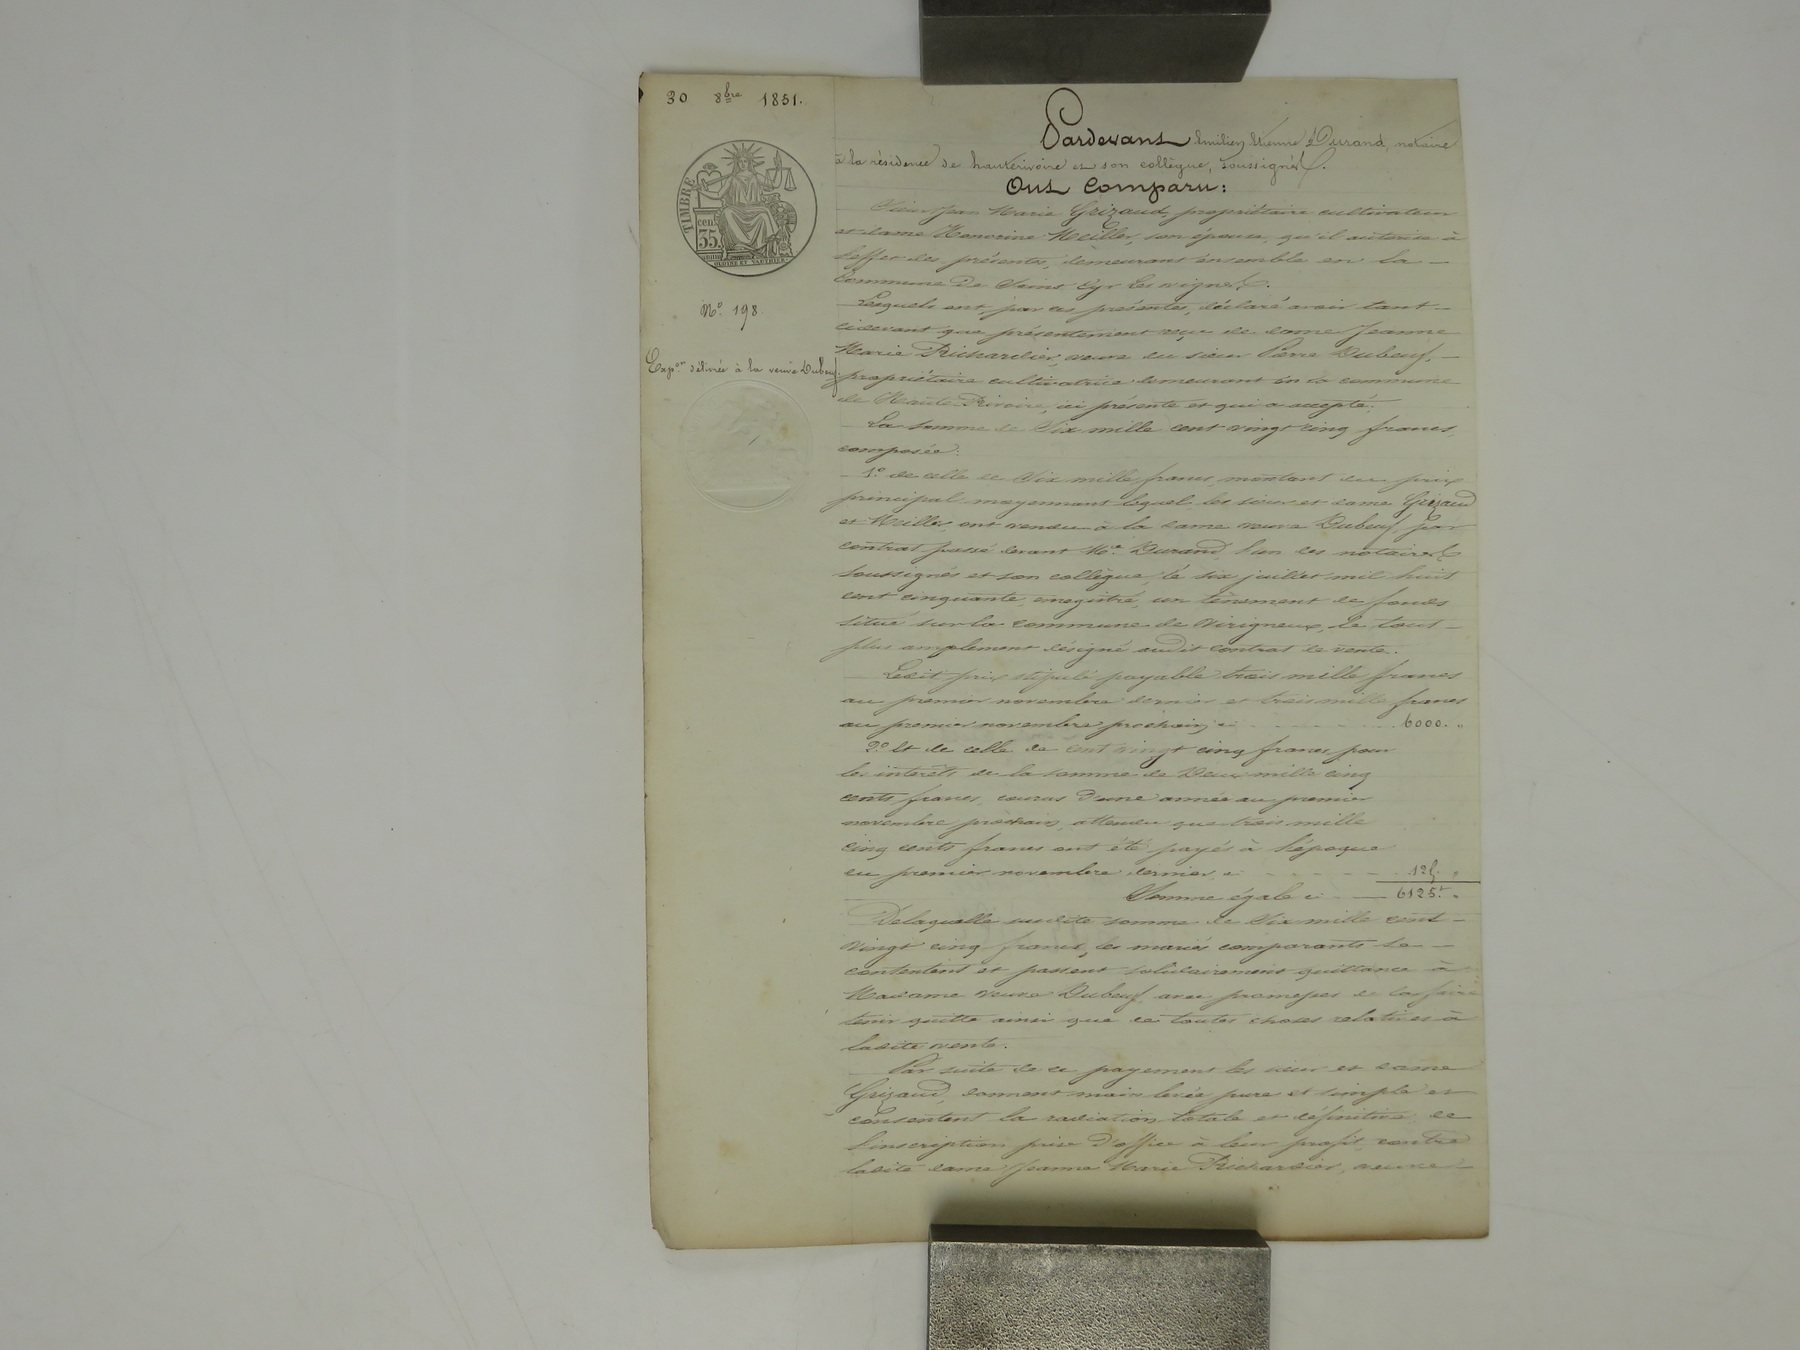 30 8bre 1851.
TIMBRE
cen.
35.
N° 198.
Expon délivrée à la veuve Dubeuf.
Pardevant Emilien Etienne Durand, notaire
à la résidence de hauterivoire et son collègue, soussignés.
Ont Comparu :
Sieur Jean Marie Grizaud, propriétaire cultivateur
et dame Honorine Meiller, son épouse, qu'il autorise à
l'effet des présentes, demeurant ensemble en la
commune de Saint Cyr les vignes.
Lesquels ont, par ces présentes, déclaré avoir tant
cidevant que présentement reçu de dame Jeanne
Marie Richardier, veuve du sieur Pierre Dubeuf,
propriétaire cultivatrice demeurant en la commune
de Haute Rivoire, ici présente et qui a accepté.
La somme de Six mille cent vingt cinq francs,
composée :
1° de celle de Six mille francs, montant du prix
principal moyennant lequel les sieur et dame Grizaud
et Meiller, ont vendu à la dame veuve Dubeuf, par
contrat passé devant Me Durand l'un des notaires
soussignés et son collègue, le six juillet mil huit
cent cinquante, enregistré, un tènement de fonds
situé sur la commune de Virigneux, le tout
plus amplement désigné audit contrat de vente.
Ledit prix stipulé payable trois mille francs
au premier novembre dernier et trois mille francs
au premier novembre prochain, ci 6000. "
2° Et de celle de cent vingt cinq francs, pour
les intérêts de la somme de Deux mille cinq
cents francs, courus d'une année au premier
novembre prochain, attendu que trois mille
cinq cents francs ont été payés à l'époque
du premier novembre dernier, ci 125. "
Somme égale ci 6125. "
Delaquelle susdite somme de Six mille cent
vingt cinq francs, les mariés comparants se
contentent et passent solidairement quittance à
Madame veuve Dubeuf, avec promesses de la faire
tenir quitte ainsi que de toutes choses relatives à
ladite vente.
Par suite de ce payement les sieur et dame
Grizaud, donnent main levée pure et simple et
consentent la radiation totale et définitive de
l'inscription prise d'office à leur profit, contre
ladite dame Jeanne Marie Richardier, veuve